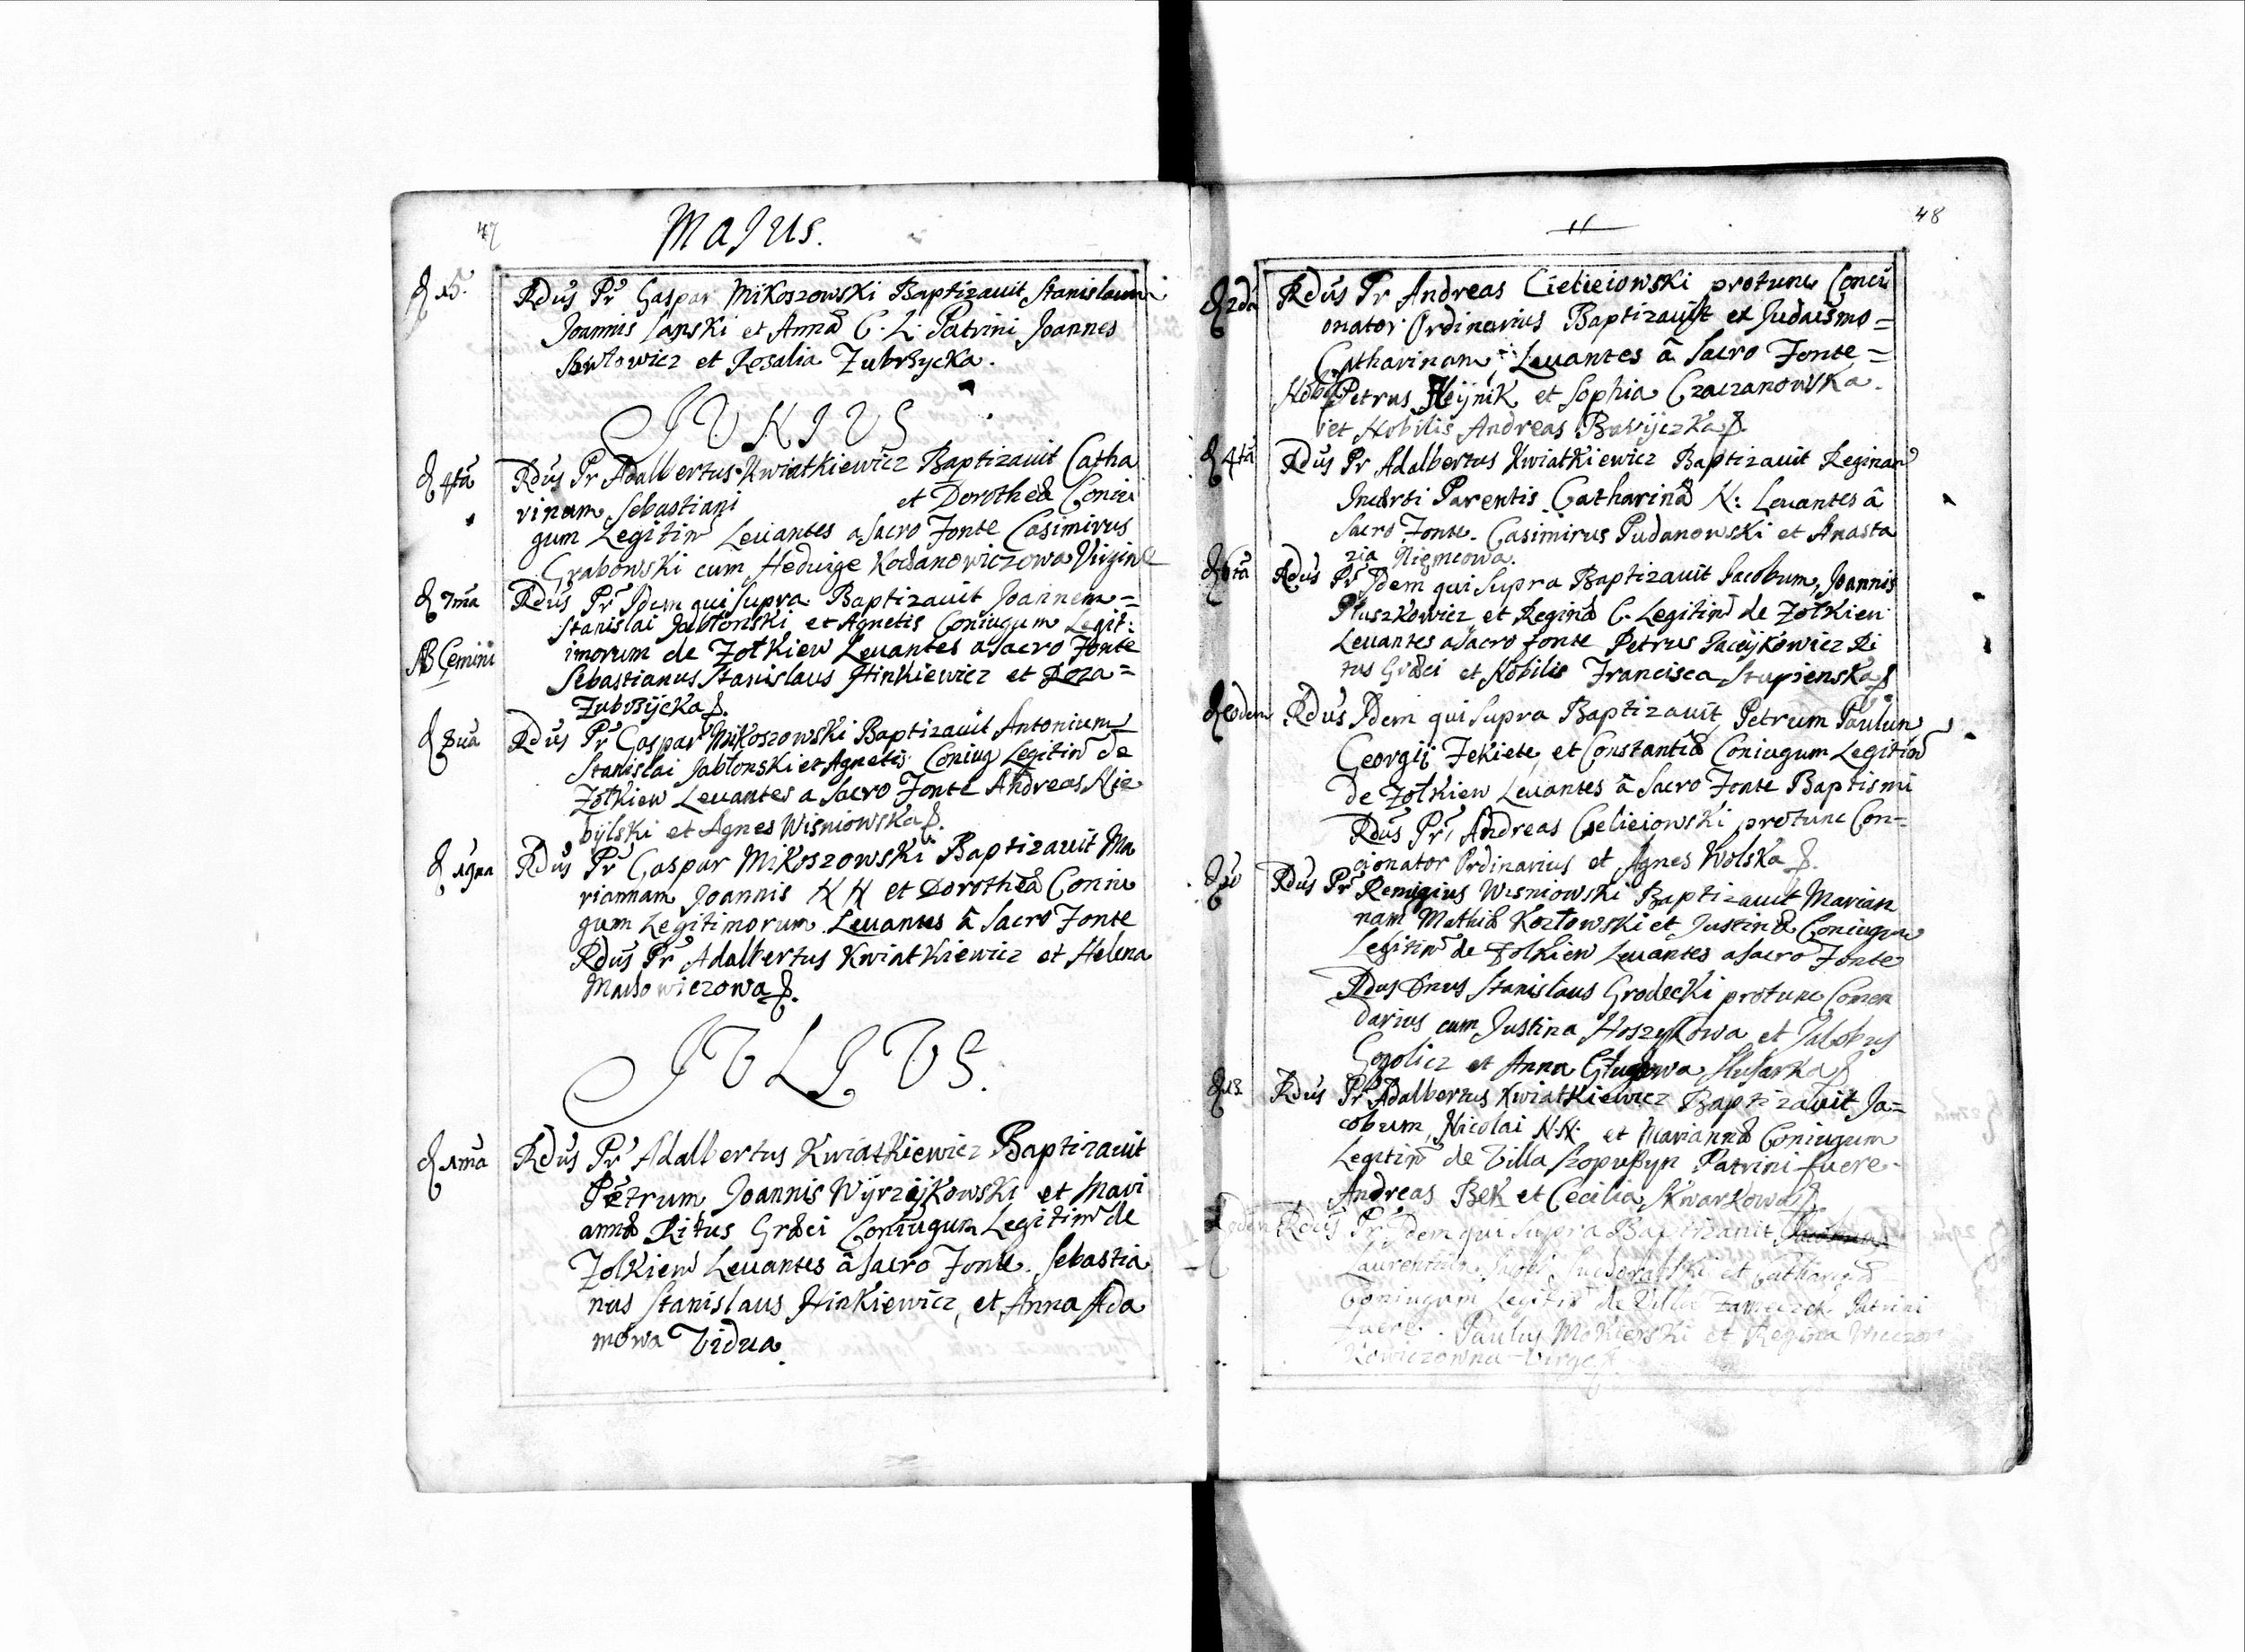 47
Majus.
d 15.
Rdus Pr Gaspar Mikoszowski Baptizauit Stanislaum
Joannis Sanski et Annæ C. L. Patrini Joannes
et Rosalia Zubrzycka.
JUNIUS
d 4ta
Rdus Pr Adalbertus Kwiatkiewicz Baptizauit Catha
rinam Sebastiani et Dorotheæ Coniu
gum Legitim Leuantes a Sacro Fonte Casimirus
Grabowski cum Heduige Virgine
d 7ma
Rdus Pr Idem qui supra Baptizauit Joannem =
Stanislai Jabłonski et Agnetis Coniugum Legit:
NB Gemini
imorum de Zołkiew Leuantes a Sacro Fonte
Sebastianus Stanislaus Hinkiewicz et Roza =
Zubrzÿcka
d
Rdus Pr Gaspar Mikoszowski Baptizauit Antonium
Stanislai Jabłonski et Agnetis Coniug Legitim de
Zołkiew Leuantes a Sacro Fonte Andreas Nie
bÿlski et Agnes Wisniowska
d 19na
Rdus Pr Gaspar Mikoszowski Baptizauit Ma
riannam Joannis N N et Dorotheæ Coniu
gum Legitimorum Leuantes â Sacro Fonte
Rdus Pr Adalbertus Kwiatkiewicz et Helena
JULIUS.
d 1ma
Rdus Pr Adalbertus Kwiatkiewicz Baptizauit
Petrum Joannis Wÿrzÿkowski et Mari
annæ Ritus Græci Coniugum Legitim de
Zolkiew Leuantes â Sacro Fonte. Sebastia
nus Stanislaus Hinkiewicz, et Anna Ada
mowa Vidua.
48
d 2da
Rdus Pr Andreas Cieliciowski protunc Conci
onator Ordinarius Baptizauit ex Judaismo =
Catharinam; Leuantes â Sacro Fonte =
Petrus et Sophia Czaczanowska.
et Nobilis Andreas
d 4ta
Rdus Pr Adalbertus Kwiatkiewicz Baptizauit Reginam
Incerti Parentis Catharinæ N: Leuantes â
Sacro Fonte. Casimirus Pudanowski et Anasta
zia Niemcowa.
d 6ta
Rdus Pr Idem qui supra Baptizauit Jacobum, Joannis
Pluszkowicz et Reginæ C. Legitim de Zołkiew
Leuantes a Sacro fonte Petrus Ri
tus Græci et Nobilis Francisca Stupienska
d Eodem
Rdus Idem qui supra Baptizauit Petrum Paulum
Georgij Fekiete et Constantiæ Coniugum Legitim
de Zołkiew Leuantes â Sacro Fonte Baptismi
Rdus Pr Andreas Cieliciowski protunc Con=
cionator Ordinarius et Agnes Wolska
d 10
Rdus Pr Remigius Wisniowski Baptizauit Marian
nam Mathiæ Kozłowski et Justinæ Coniugum
Legitim de Zolkiew Leuantes a Sacro Fonte
Rdus Dnus Stanislaus Grodecki protunc Comen
darius cum Justina et Jacobus
Gogolicz et Anna
d 13
Rdus Pr Adalbertus Kwiatkiewicz Baptizauit Ja=
cobum, Nicolai N.N. et Mariannæ Coniugum
Legitim de Villa Patrini fuere.
Andreas Bek et Cecilia Skwarkowa
Eodem
Rdus Pr Idem qui supra Baptizauit
et Catharinæ
Coniugum Legitim de Villa Patrini
fuere. Paulus Mokierski et Regina